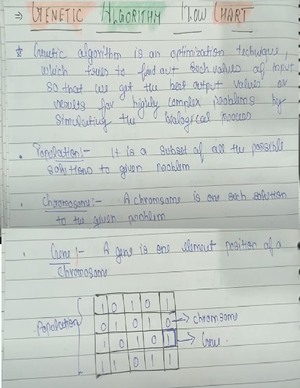 ⇒ GENETIC ALGORITHM FLOW CHART
* Genetic algorithm is an optimization technique,
which tries to find out such values of input
so that we get the best output values or
results for highly complex problems by
simulating the biological process
• Population:- It is a subset of all the possible
solutions to given problem
• Chromosome:- A chromosome is one such solution
to the given problem
• Gene:- A gene is one element position of a
chromosome
Population
1 0 1 0 1
0 1 0 1 0 → chromosome
1 0 1 0 1 → Gene.
1 1 0 1 1